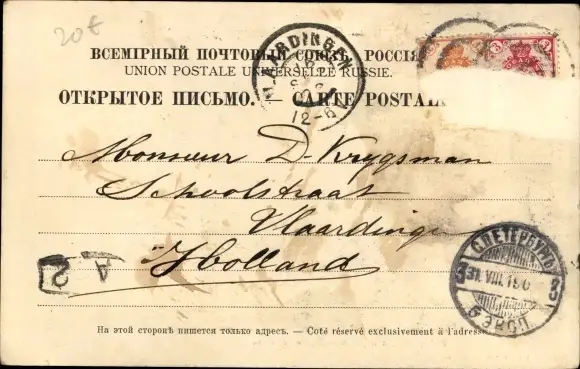 20€
ВСЕМІРНЫЙ ПОЧТОВЫЙ СОЮЗЪ. РОССІЯ
UNION POSTALE UNIVERSELLE RUSSIE.
ОТКРЫТОЕ ПИСЬМО. — CARTE POSTALE
VLAARDINGEN
12-6
3 3
Monsieur D. Krygsman
Schoolstraat
Vlaardinge
Holland
С.ПЕТЕРБУРГЪ
31 VIII 190
5 ЭКСП
На этой сторонѣ пишется только адресъ. — Coté réservé exclusivement à l'adresse